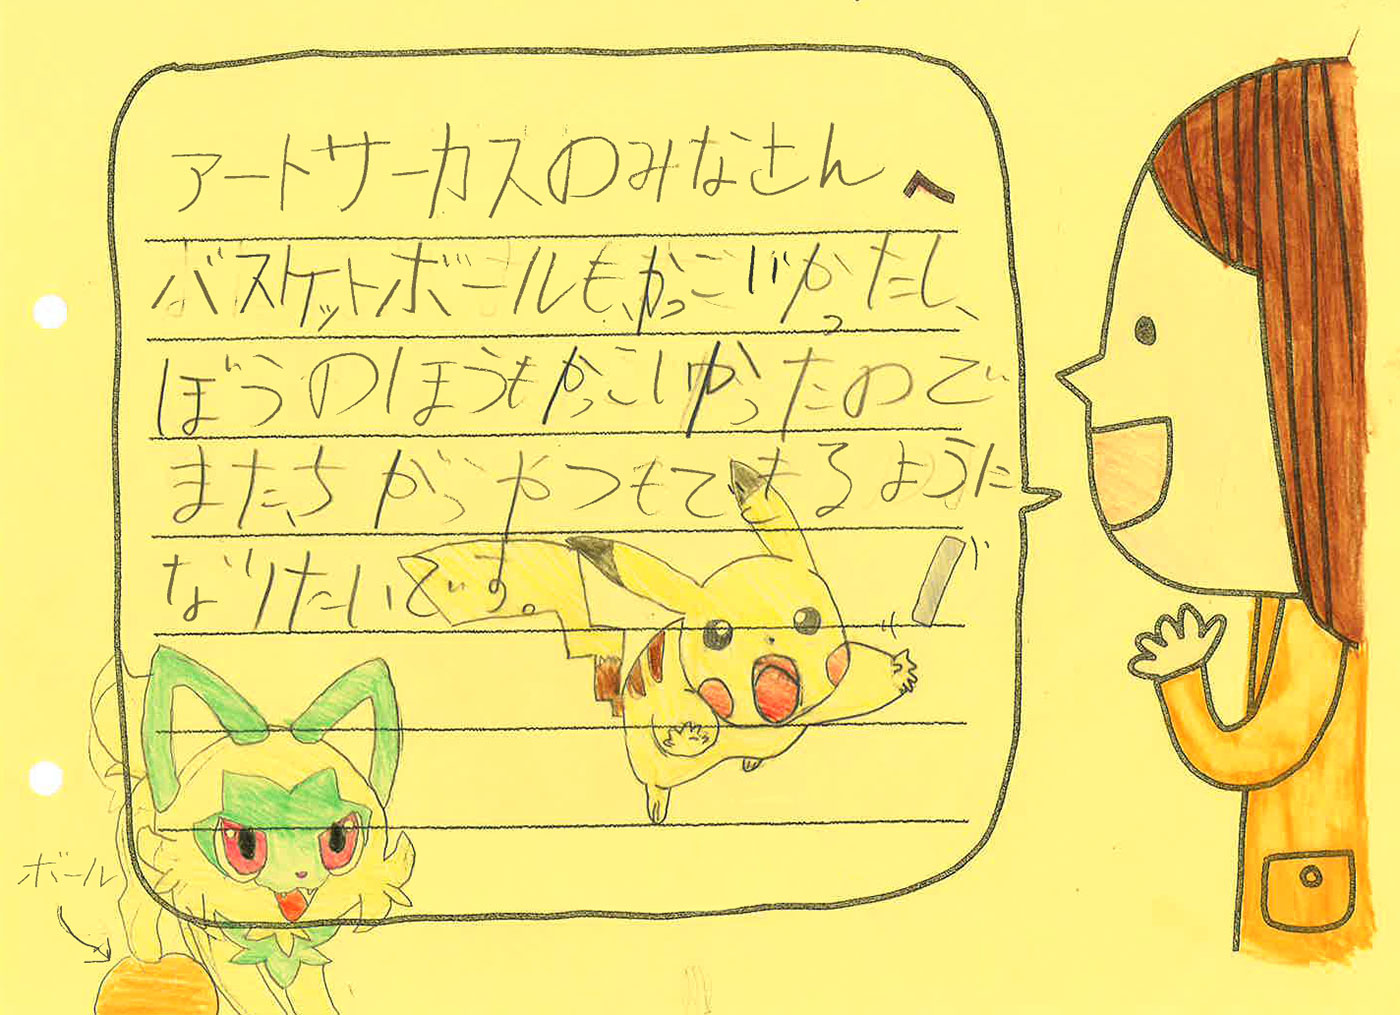 アートサーカスのみなさんへ
バスケットボールも、かっこいかったし、
ぼうのほうもかっこいかったので
また、ちがうやつもできるように
なりたいです。
ボール